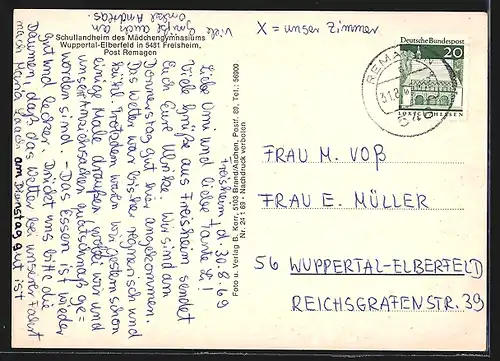 X = unser Zimmer
Schullandheim des Mädchengymnasiums
Wuppertal-Elberfeld in 5481 Freisheim,
Post Remagen
Viele Grüße auch an
Onkel Andreas.
Deutsche Bundespost
20
LORSCH/HESSEN
REMAGEN
31.8.
Foto u. Verlag B. Korr, 5103 Brand/Aachen, Postf. 89, Tel.: 56000
Nr. 24 1 69 - Nachdruck verboten
Freisheim d. 30.8.69
Liebe Omi und liebe Tante E.!
Viele Grüße aus Freisheim sendet
Euch Eure Ulrike. Wir sind am
Donnerstag gut hier angekommen.
Das Wetter war bisher regnerisch und
kühl. Trotzdem waren wir gestern schon
einige Male draußen, wofür wir und
unsere Anziehsachen
worden sind. - Das Essen ist wieder
gut und lecker. Drückt uns bitte die
Daumen, daß das Wetter bei unserer Fahrt
nach Maria Laach am Dienstag gut ist
FRAU M. VOß
FRAU E. MÜLLER
56 WUPPERTAL-ELBERFELD
REICHSGRAFENSTR. 39